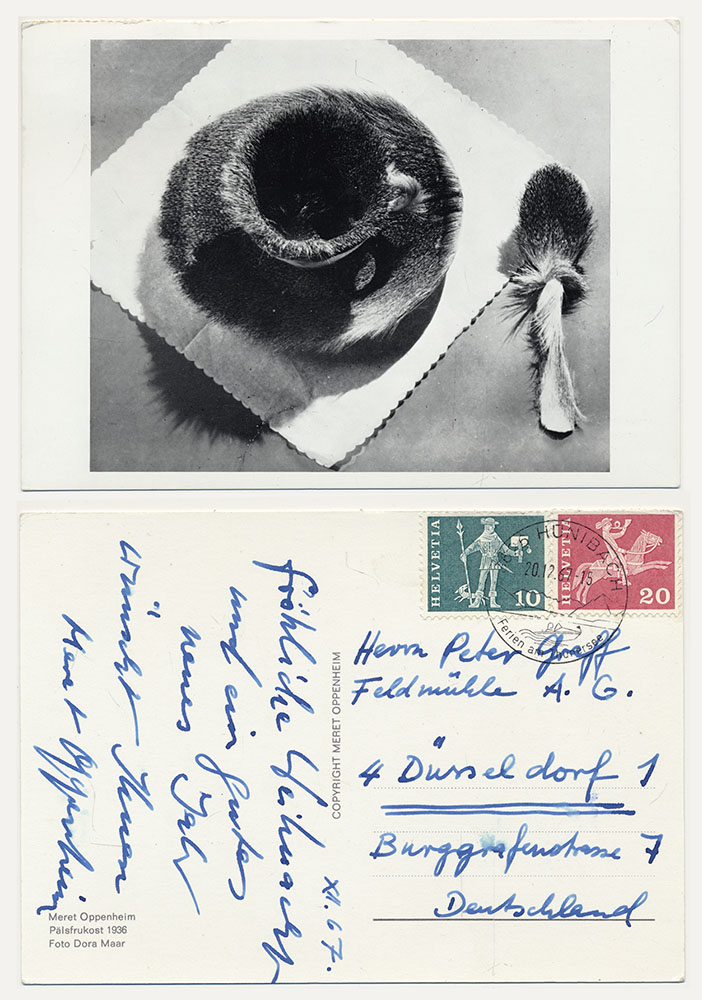 HELVETIA
10
HELVETIA
20
HÜNIBACH
20.12.67-15
Ferien am Thunersee
Herrn Peter
Feldmühle A. G.
4 Düsseldorf 1
Burggrafenstrasse 7
Deutschland
COPYRIGHT MERET OPPENHEIM
XII.67.
fröhliche Weihnacht
und ein gutes
neues Jahr
wünscht Ihnen
Meret Oppenheim
Meret Oppenheim
Pälsfrukost 1936
Foto Dora Maar